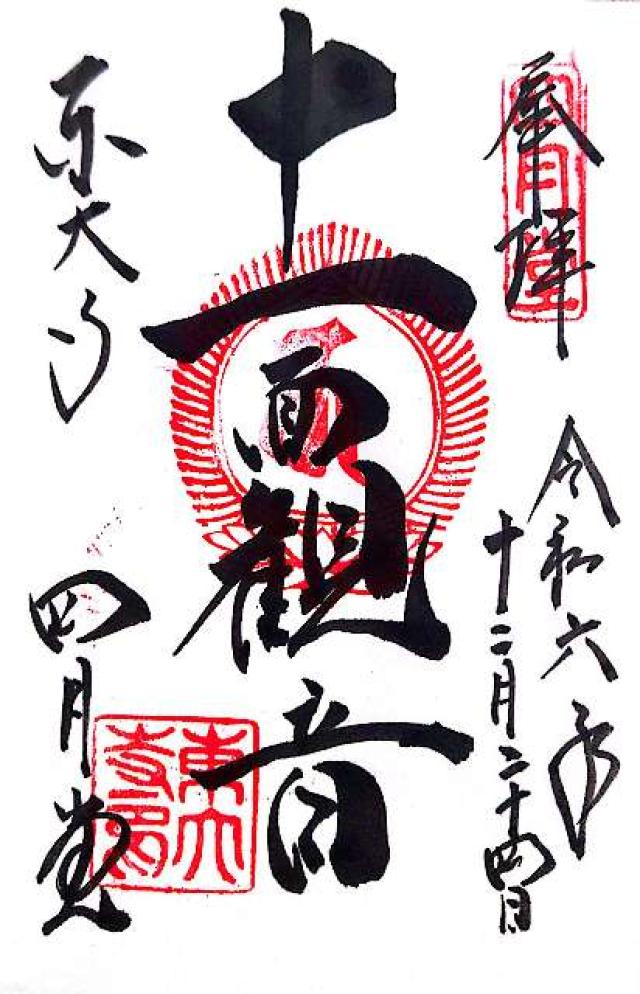 奉拝
四月堂
令和六年
十二月二十四日
十一面観音
東大寺
四月堂
東大寺印